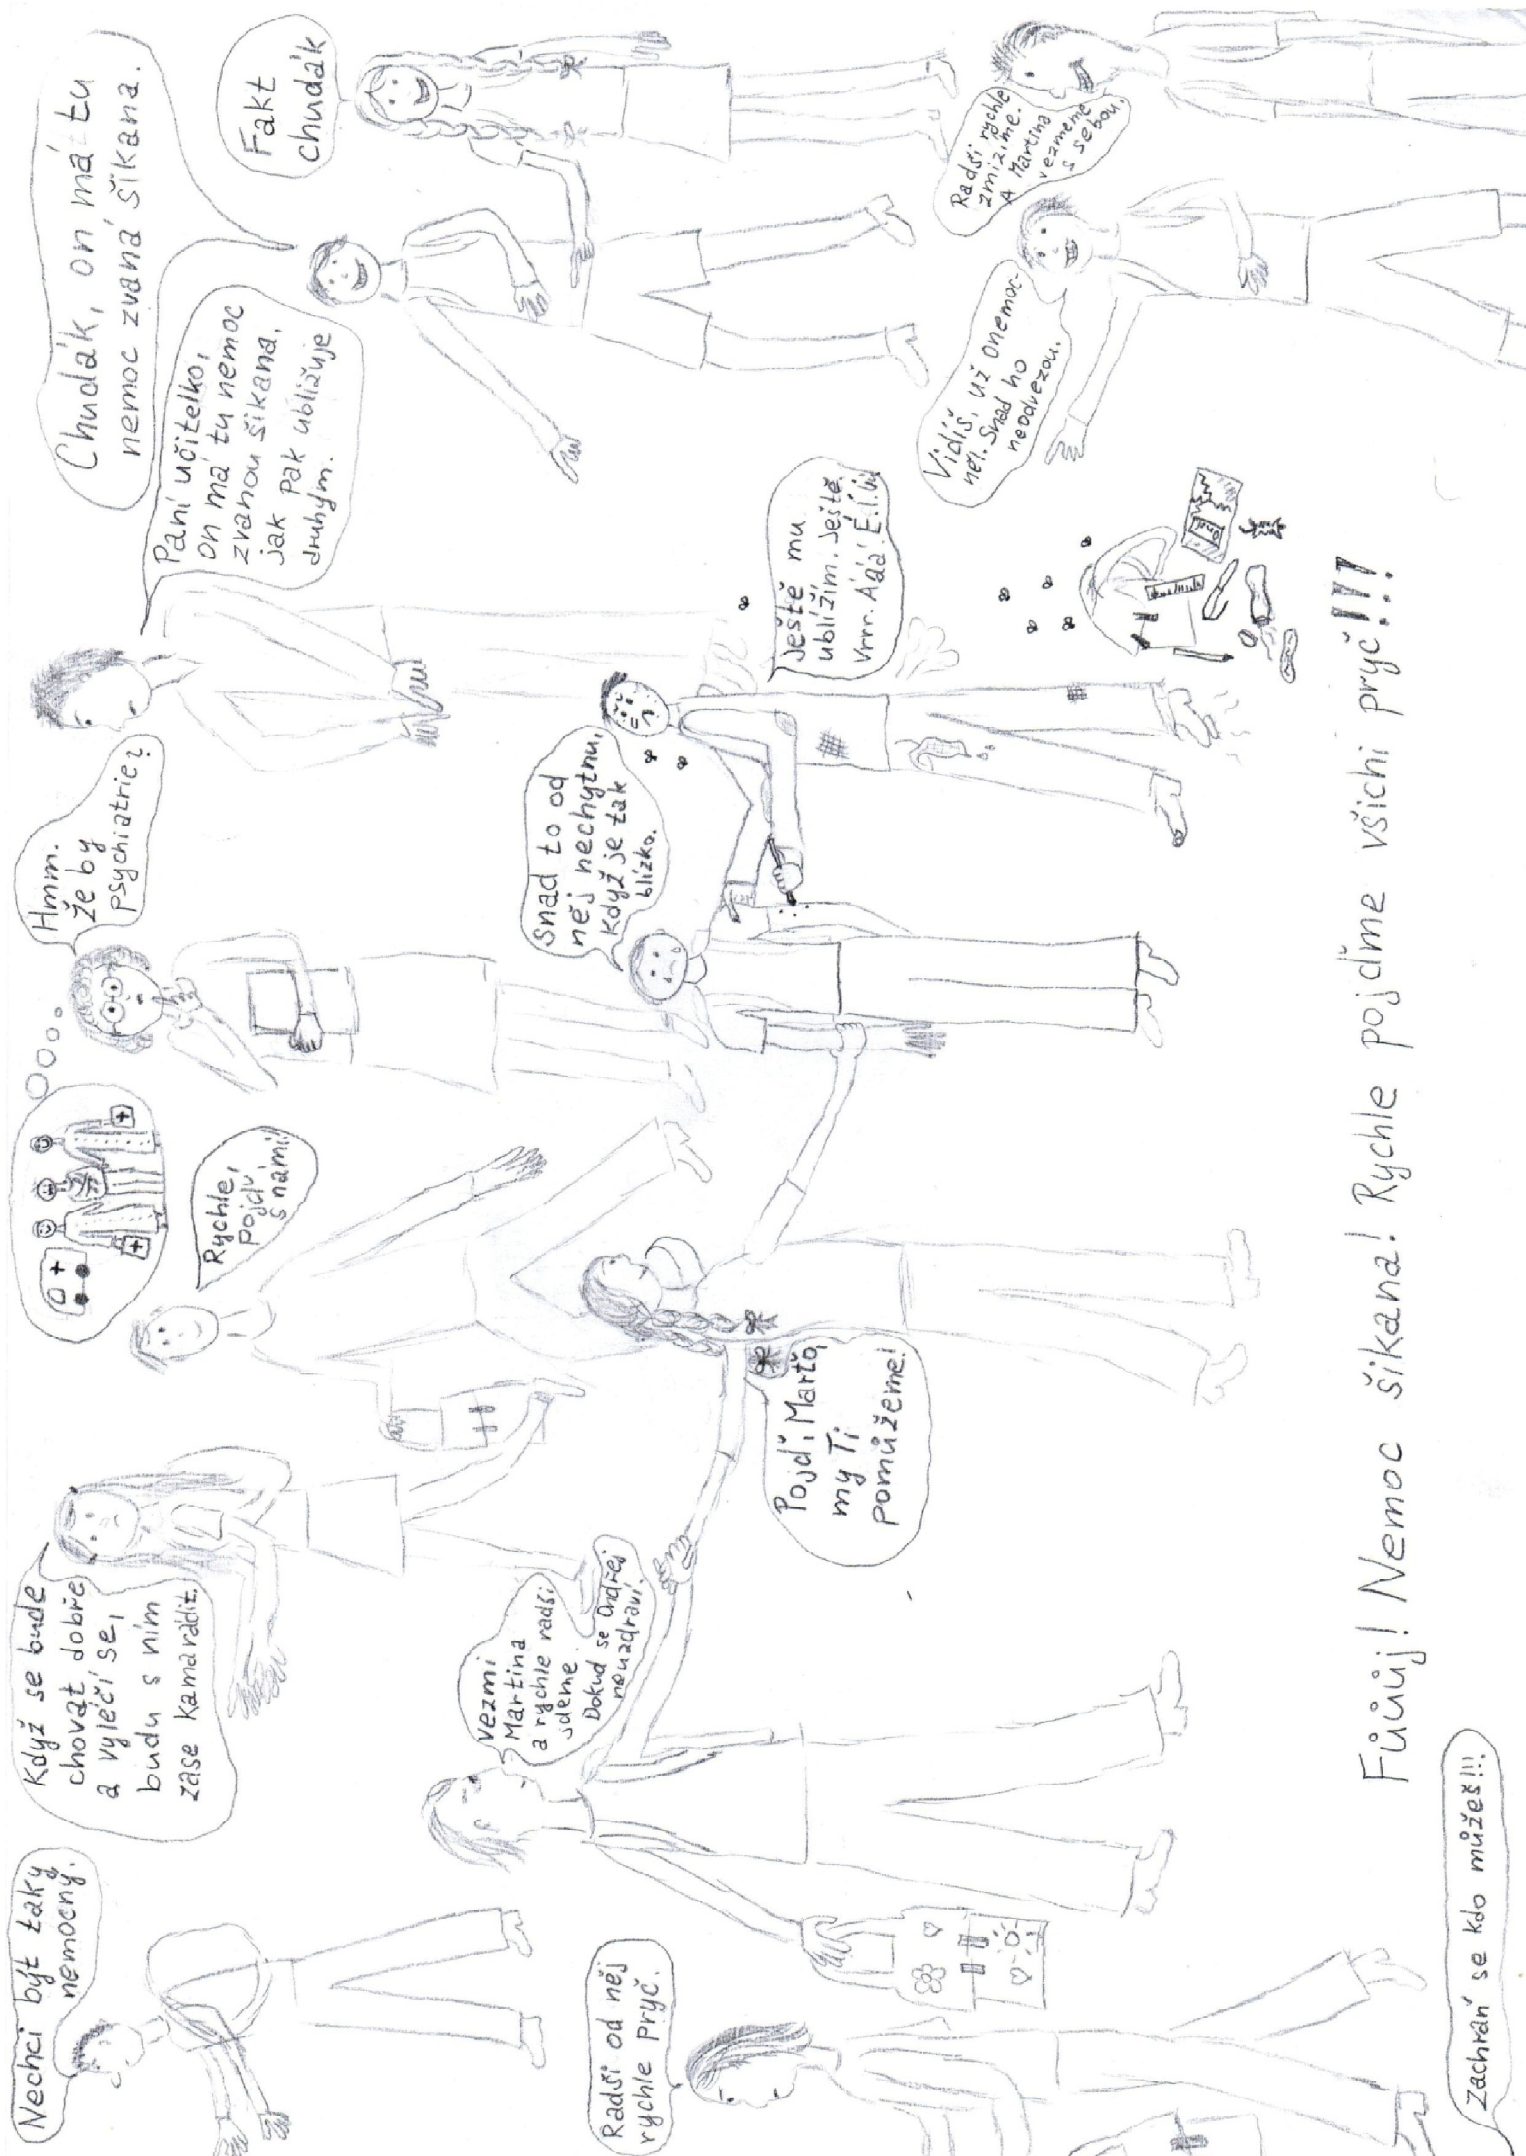 Nechci být taky
nemocný.
Když se bude
chovat dobře
a vyléčí se,
budu s ním
zase kamarádit.
Rychle,
pojdú
s námi!
Hmm.
že by
psychiatrie?
Paní učitelko,
on má tu nemoc
zvanou šikana,
jak pak ubližuje
druhým.
Chudák, on má tu
nemoc zvaná šikana.
Fakt
chudák
Radši od něj
rychle pryč.
Vezmi
Martina
a rychle radši
jdeme.
Dokud se Ondřej
neuzdraví.
Pojď, Marťo,
my Ti
pomůžeme!
Snad to od
něj nechytnu,
když je tak
blízko.
Ještě mu
ublížím. Ještě.
Vrrr. Ááá. É.í.
Vidíš, už onemoc-
něl. Snad ho
neodvezou.
Radši rychle
zmizíme.
A Martina
vezmeme
s sebou.
Fůůůj! Nemoc šikana! Rychle pojďme všichi pryč!!!
Zachrání se kdo můžeš!!!